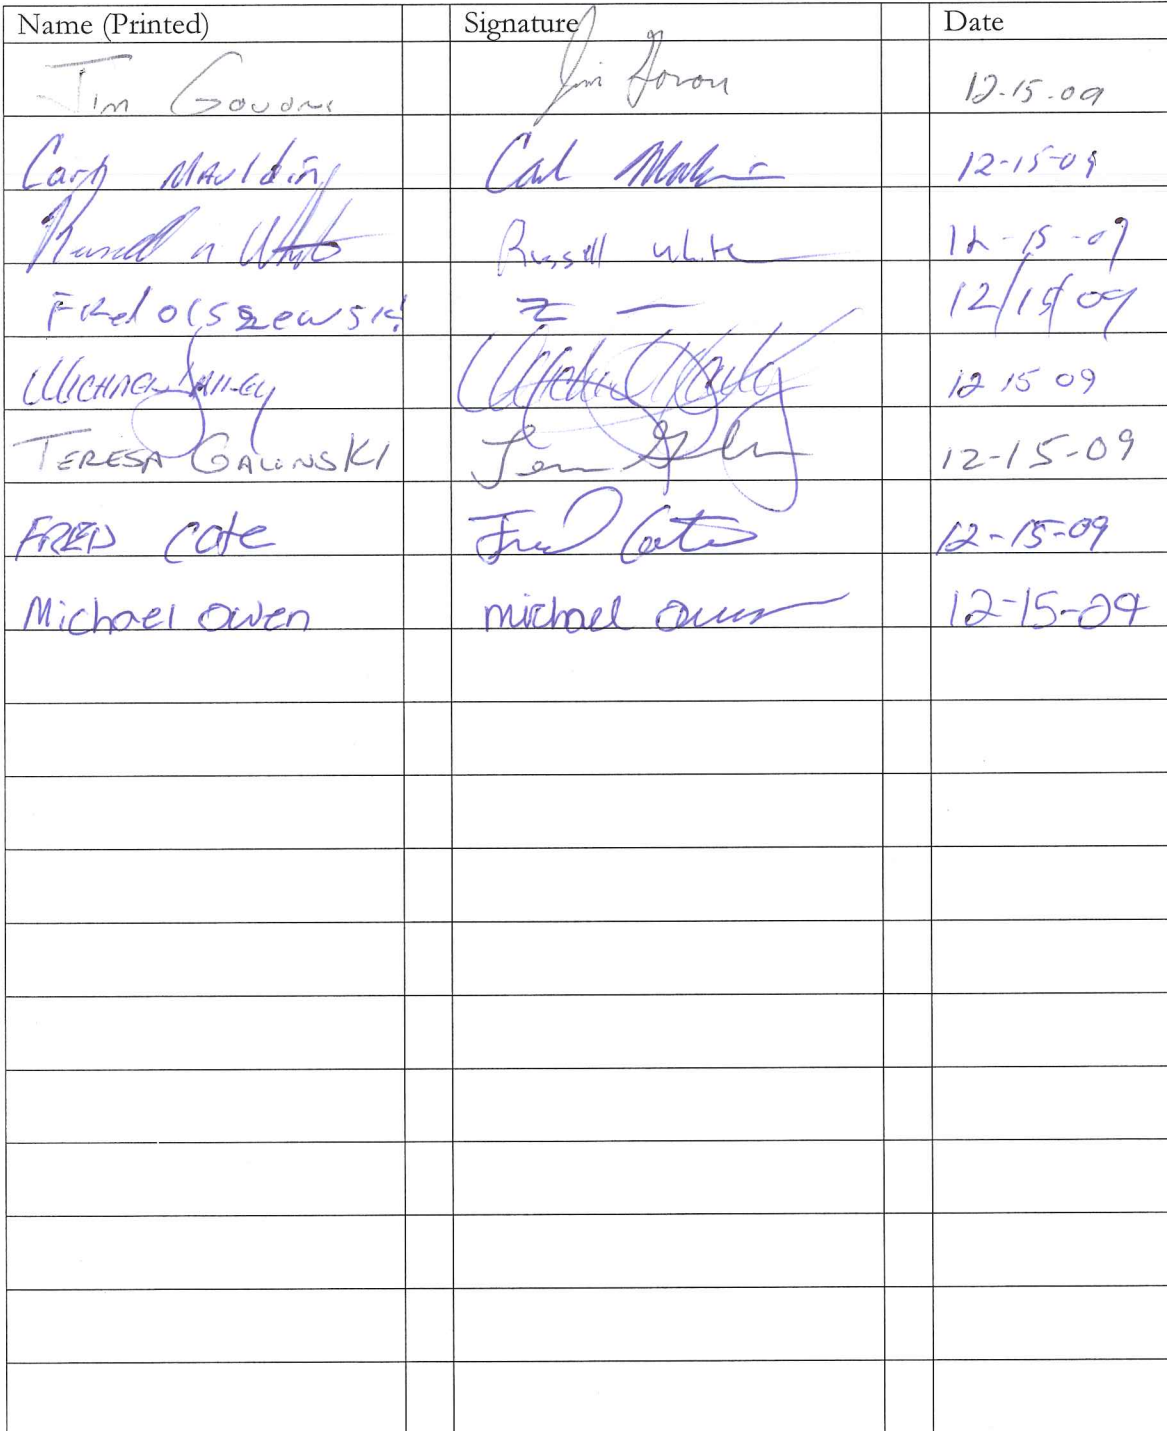 Name (Printed) Signature Date
Jim Jim 12-15-09
Maulding Carl 12-15-09
Russell n White Russell White 12-15-09
Fred Olszewski 12/15/09
Michael Bailey 12 15 09
TERESA GALINSKI 12-15-09
FRED Cate Fred Cate 12-15-09
Michael Owen michael Owen 12-15-09